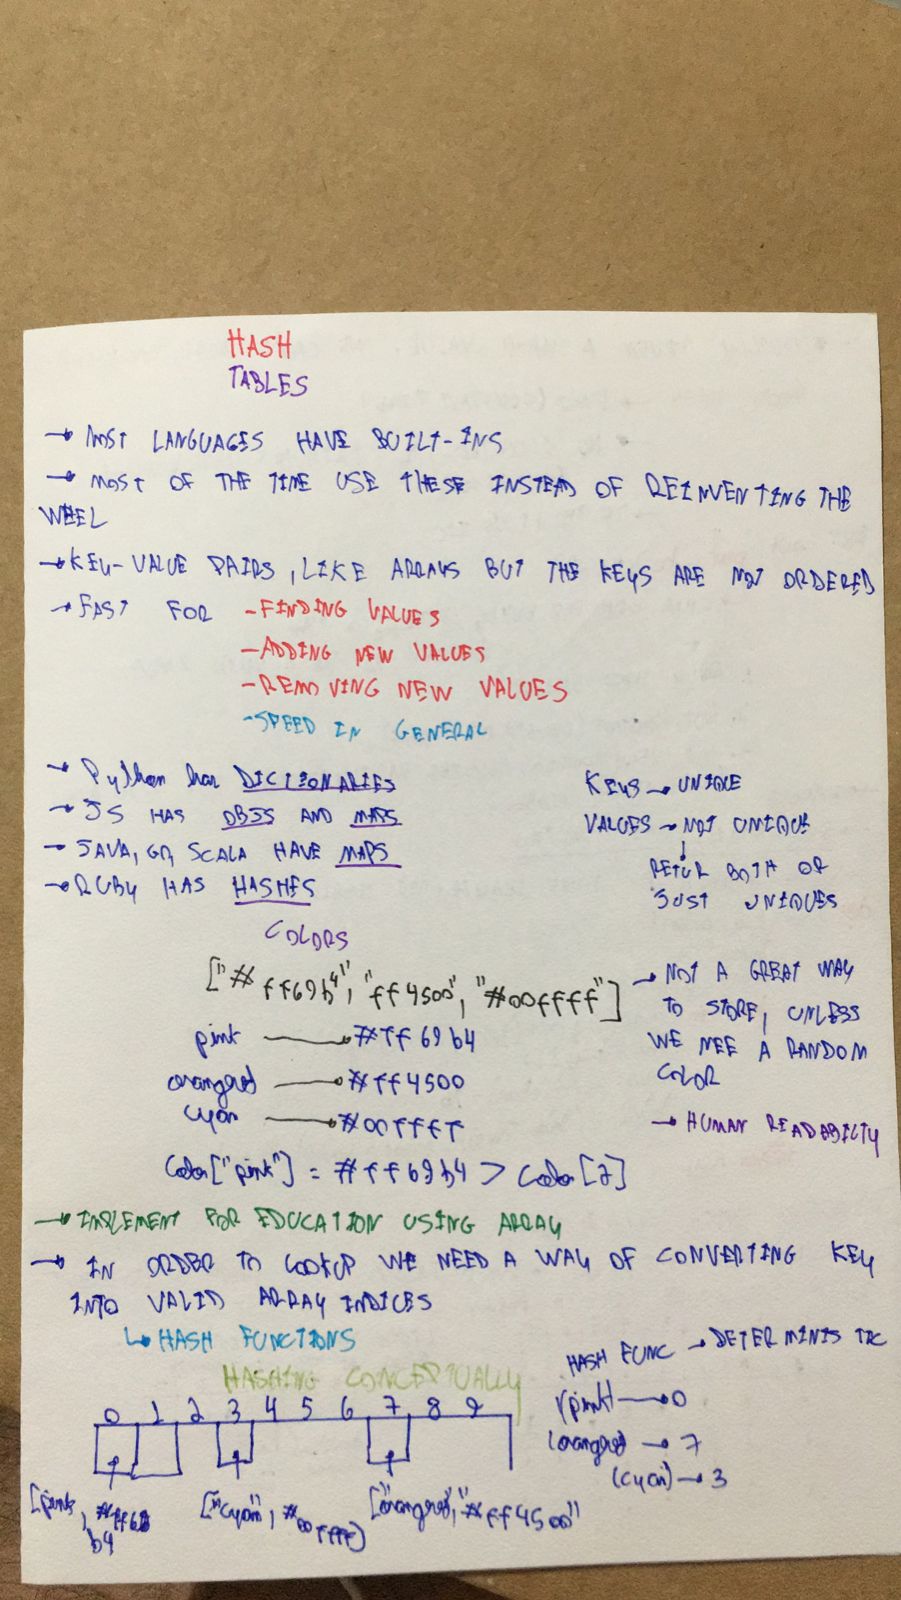 HASH
TABLES
→ MOST LANGUAGES HAVE BUILT-INS
→ MOST OF THE TIME USE THESE INSTEAD OF REINVENTING THE
WHEEL
→ KEY-VALUE PAIRS, LIKE ARRAYS BUT THE KEYS ARE NOT ORDERED
→ FAST FOR - FINDING VALUES
- ADDING NEW VALUES
- REMOVING NEW VALUES
- SPEED IN GENERAL
→ Python has DICTIONARIES
→ JS HAS OBJS AND MAPS
→ JAVA, GO, SCALA HAVE MAPS
→ RUBY HAS HASHES
KEYS → UNIQUE
VALUES → NOT UNIQUE
↓
RETUR BOTH OR
JUST UNIQUES
COLORS
["#ff69b4", "ff4500", "#00ffff"]
→ NOT A GREAT WAY
TO STORE, UNLESS
WE NEE A RANDOM
COLOR
→ HUMAN READABILTY
pink → #ff69b4
orangred → #ff4500
cyan → #00ffff
Color["pink"] = #ff69b4 > Color[2]
→ IMPLEMENT FOR EDUCATION USING ARRAY
→ IN ORDER TO LOOKUP WE NEED A WAY OF CONVERTING KEY
INTO VALID ARRAY INDICES
↳ HASH FUNCTIONS
HASHING CONCEPTUALLY
0 1 2 3 4 5 6 7 8 9
["pink, #ff69
b4
["cyan", #00ffff]
["orangred", "#ff4500"
HASH FUNC → DETERMINISTIC
(pink) → 0
(orangred → 7
(cyan) → 3